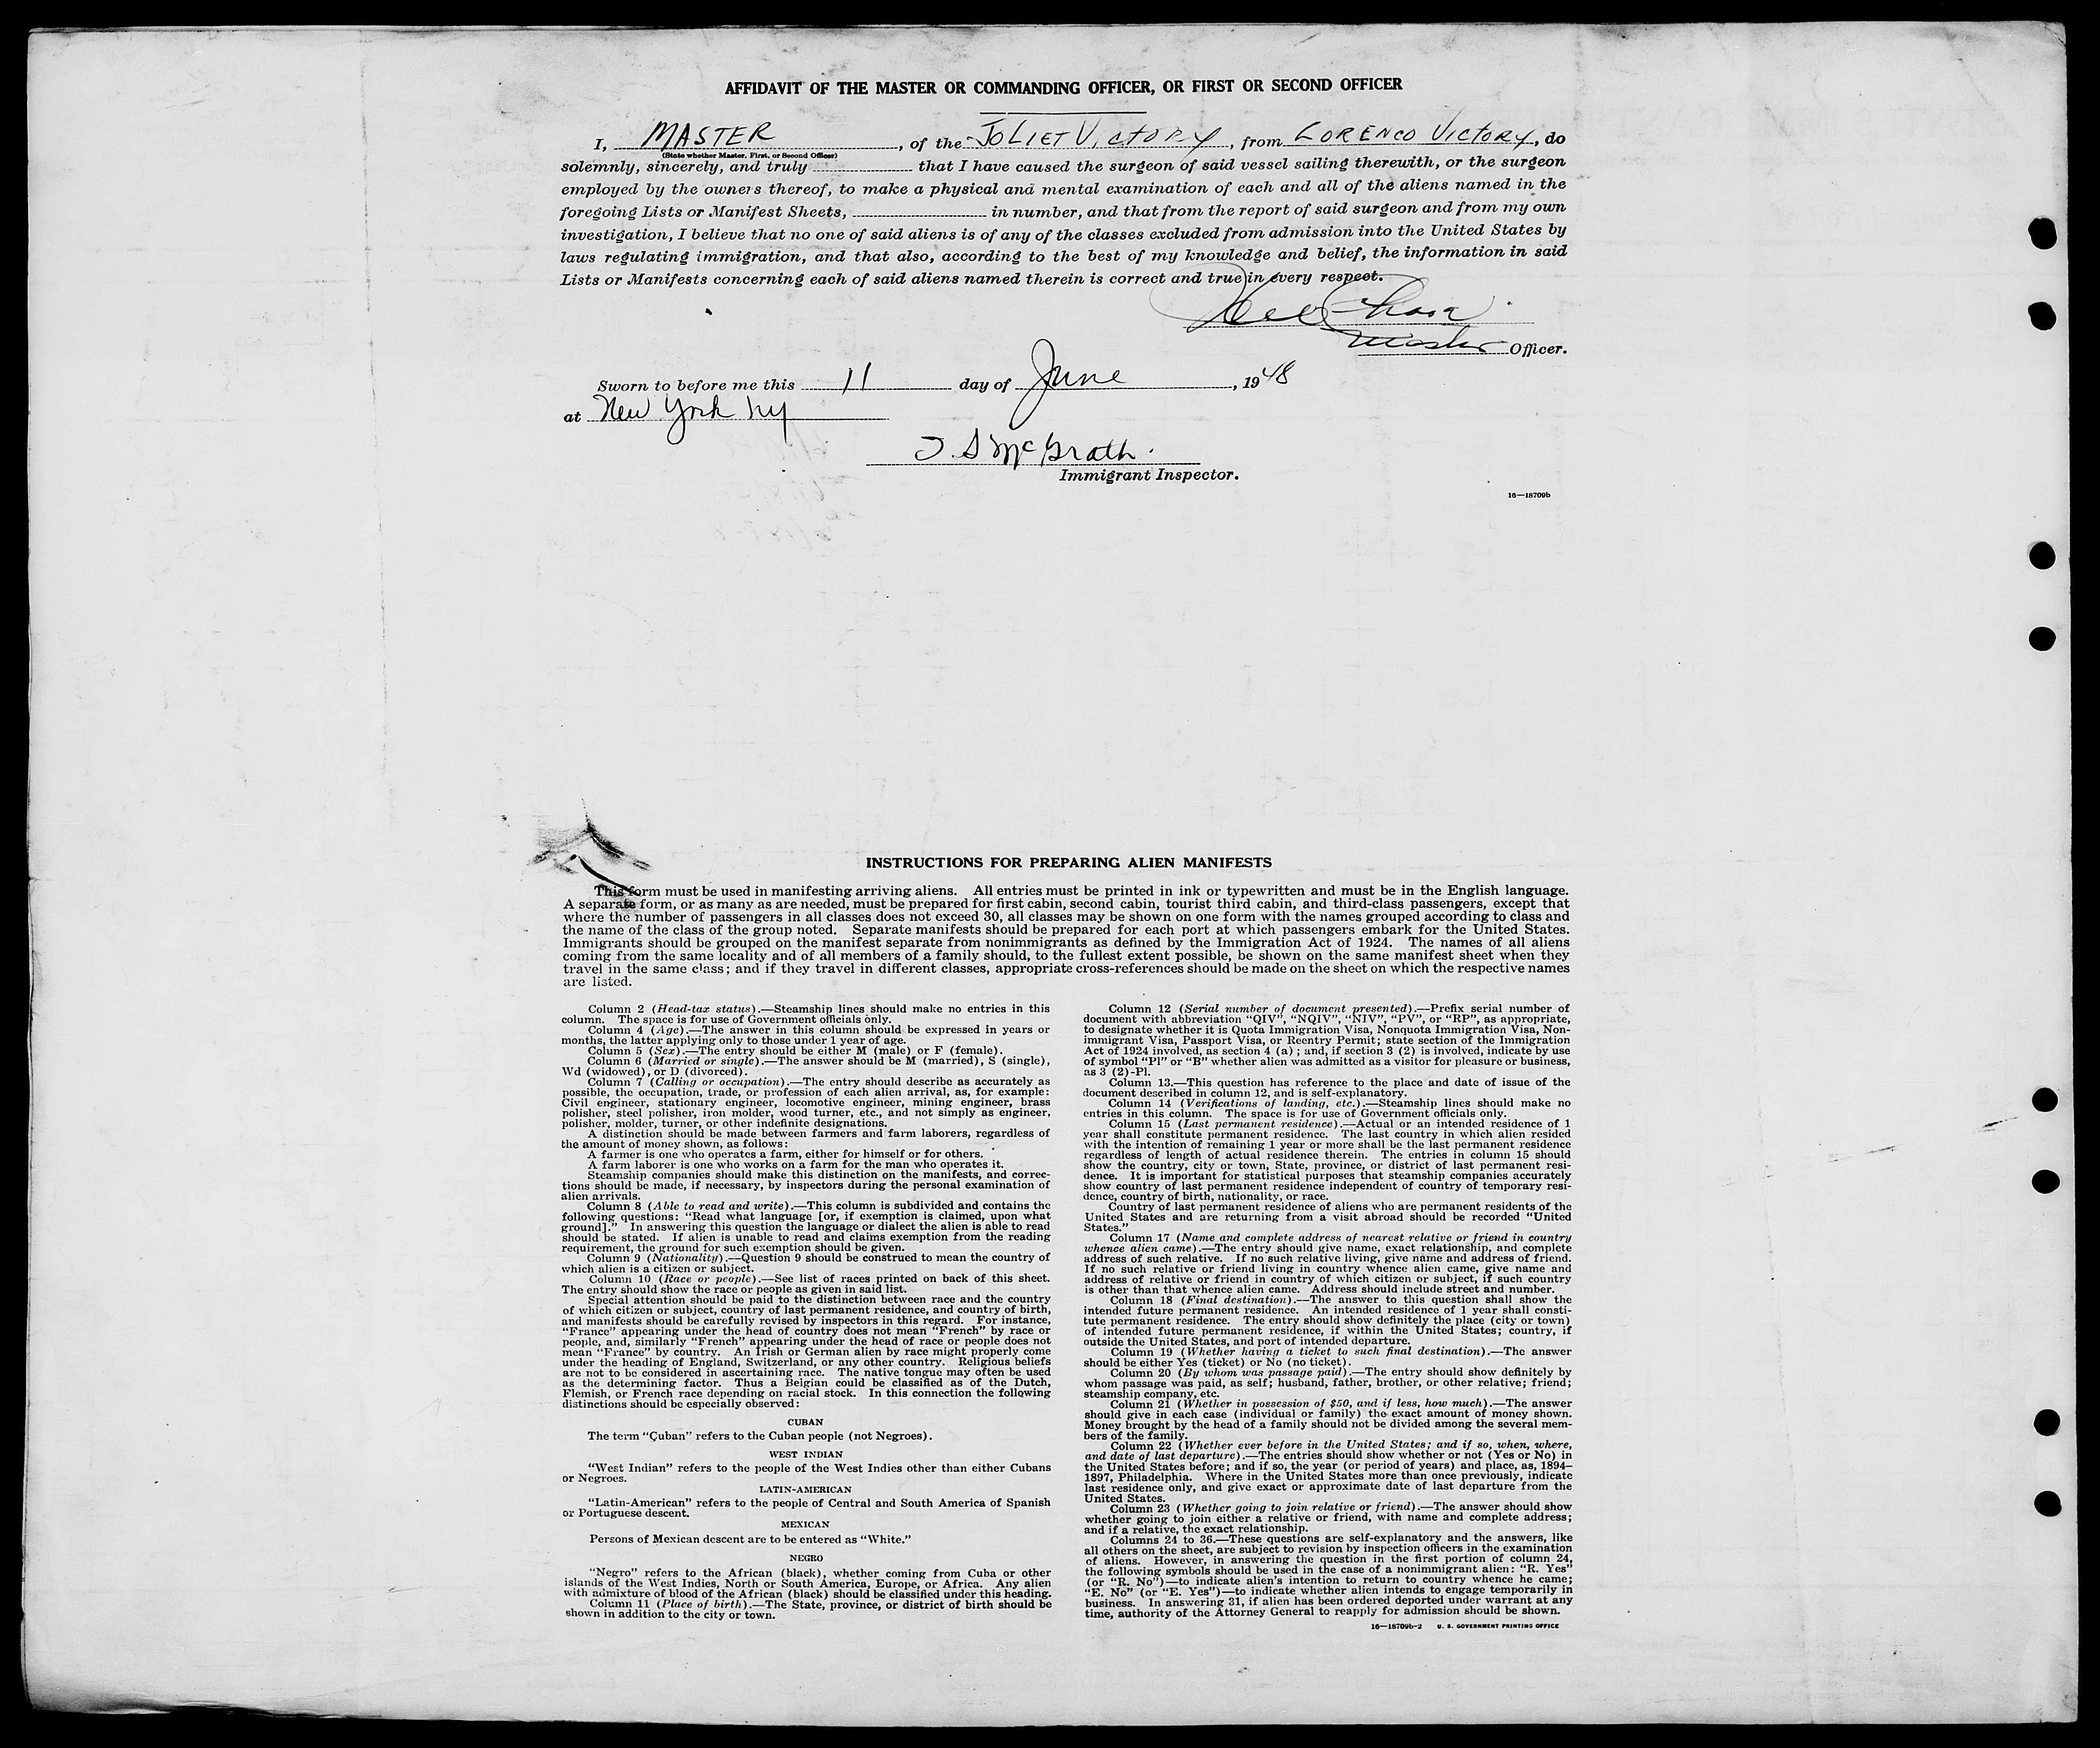 AFFIDAVIT OF THE MASTER OR COMMANDING OFFICER, OR FIRST OR SECOND OFFICER
I, MASTER, of the JOLIET VICTORY, from LORENCO VICTORY, do
(State whether Master, First, or Second Officer)
solemnly, sincerely, and truly that I have caused the surgeon of said vessel sailing therewith, or the surgeon
employed by the owners thereof, to make a physical and mental examination of each and all of the aliens named in the
foregoing Lists or Manifest Sheets, in number, and that from the report of said surgeon and from my own
investigation, I believe that no one of said aliens is of any of the classes excluded from admission into the United States by
laws regulating immigration, and that also, according to the best of my knowledge and belief, the information in said
Lists or Manifests concerning each of said aliens named therein is correct and true in every respect.
Master Officer.
Sworn to before me this 11 day of June, 1948
at New York NY
J. S McGrath.
Immigrant Inspector.
16—18709b
INSTRUCTIONS FOR PREPARING ALIEN MANIFESTS
This form must be used in manifesting arriving aliens. All entries must be printed in ink or typewritten and must be in the English language.
A separate form, or as many as are needed, must be prepared for first cabin, second cabin, tourist third cabin, and third-class passengers, except that
where the number of passengers in all classes does not exceed 30, all classes may be shown on one form with the names grouped according to class and
the name of the class of the group noted. Separate manifests should be prepared for each port at which passengers embark for the United States.
Immigrants should be grouped on the manifest separate from nonimmigrants as defined by the Immigration Act of 1924. The names of all aliens
coming from the same locality and of all members of a family should, to the fullest extent possible, be shown on the same manifest sheet when they
travel in the same class; and if they travel in different classes, appropriate cross-references should be made on the sheet on which the respective names
are listed.
Column 2 (Head-tax status).—Steamship lines should make no entries in this
column. The space is for use of Government officials only.
Column 4 (Age).—The answer in this column should be expressed in years or
months, the latter applying only to those under 1 year of age.
Column 5 (Sex).—The entry should be either M (male) or F (female).
Column 6 (Married or single).—The answer should be M (married), S (single),
Wd (widowed), or D (divorced).
Column 7 (Calling or occupation).—The entry should describe as accurately as
possible, the occupation, trade, or profession of each alien arrival, as, for example:
Civil engineer, stationary engineer, locomotive engineer, mining engineer, brass
polisher, steel polisher, iron molder, wood turner, etc., and not simply as engineer,
polisher, molder, turner, or other indefinite designations.
A distinction should be made between farmers and farm laborers, regardless of
the amount of money shown, as follows:
A farmer is one who operates a farm, either for himself or for others.
A farm laborer is one who works on a farm for the man who operates it.
Steamship companies should make this distinction on the manifests, and correc-
tions should be made, if necessary, by inspectors during the personal examination of
alien arrivals.
Column 8 (Able to read and write).—This column is subdivided and contains the
following questions: “Read what language [or, if exemption is claimed, upon what
ground].” In answering this question the language or dialect the alien is able to read
should be stated. If alien is unable to read and claims exemption from the reading
requirement, the ground for such exemption should be given.
Column 9 (Nationality).—Question 9 should be construed to mean the country of
which alien is a citizen or subject.
Column 10 (Race or people).—See list of races printed on back of this sheet.
The entry should show the race or people as given in said list.
Special attention should be paid to the distinction between race and the country
of which citizen or subject, country of last permanent residence, and country of birth,
and manifests should be carefully revised by inspectors in this regard. For instance,
“France” appearing under the head of country does not mean “French” by race or
people, and, similarly “French” appearing under the head of race or people does not
mean “France” by country. An Irish or German alien by race might properly come
under the heading of England, Switzerland, or any other country. Religious beliefs
are not to be considered in ascertaining race. The native tongue may often be used
as the determining factor. Thus a Belgian could be classified as of the Dutch,
Flemish, or French race depending on racial stock. In this connection the following
distinctions should be especially observed:
CUBAN
The term “Cuban” refers to the Cuban people (not Negroes).
WEST INDIAN
“West Indian” refers to the people of the West Indies other than either Cubans
or Negroes.
LATIN-AMERICAN
“Latin-American” refers to the people of Central and South America of Spanish
or Portuguese descent.
MEXICAN
Persons of Mexican descent are to be entered as “White.”
NEGRO
“Negro” refers to the African (black), whether coming from Cuba or other
islands of the West Indies, North or South America, Europe, or Africa. Any alien
with admixture of blood of the African (black) should be classified under this heading.
Column 11 (Place of birth).—The State, province, or district of birth should be
shown in addition to the city or town.
Column 12 (Serial number of document presented).—Prefix serial number of
document with abbreviation “QIV”, “NQIV”, “NIV”, “PV”, or “RP”, as appropriate,
to designate whether it is Quota Immigration Visa, Nonquota Immigration Visa, Non-
immigrant Visa, Passport Visa, or Reentry Permit; state section of the Immigration
Act of 1924 involved, as section 4 (a); and, if section 3 (2) is involved, indicate by use
of symbol “Pl” or “B” whether alien was admitted as a visitor for pleasure or business,
as 3 (2)-Pl.
Column 13.—This question has reference to the place and date of issue of the
document described in column 12, and is self-explanatory.
Column 14 (Verifications of landing, etc.).—Steamship lines should make no
entries in this column. The space is for use of Government officials only.
Column 15 (Last permanent residence).—Actual or an intended residence of 1
year shall constitute permanent residence. The last country in which alien resided
with the intention of remaining 1 year or more shall be the last permanent residence
regardless of length of actual residence therein. The entries in column 15 should
show the country, city or town, State, province, or district of last permanent resi-
dence. It is important for statistical purposes that steamship companies accurately
show country of last permanent residence independent of country of temporary resi-
dence, country of birth, nationality, or race.
Country of last permanent residence of aliens who are permanent residents of the
United States and are returning from a visit abroad should be recorded “United
States.”
Column 17 (Name and complete address of nearest relative or friend in country
whence alien came).—The entry should give name, exact relationship, and complete
address of such relative. If no such relative living, give name and address of friend.
If no such relative or friend living in country whence alien came, give name and
address of relative or friend in country of which citizen or subject, if such country
is other than that whence alien came. Address should include street and number.
Column 18 (Final destination).—The answer to this question shall show the
intended future permanent residence. An intended residence of 1 year shall consti-
tute permanent residence. The entry should show definitely the place (city or town)
of intended future permanent residence, if within the United States; country, if
outside the United States, and port of intended departure.
Column 19 (Whether having a ticket to such final destination).—The answer
should be either Yes (ticket) or No (no ticket).
Column 20 (By whom was passage paid).—The entry should show definitely by
whom passage was paid, as self; husband, father, brother, or other relative; friend;
steamship company, etc.
Column 21 (Whether in possession of $50, and if less, how much).—The answer
should give in each case (individual or family) the exact amount of money shown.
Money brought by the head of a family should not be divided among the several mem-
bers of the family.
Column 22 (Whether ever before in the United States; and if so, when, where,
and date of last departure).—The entries should show whether or not (Yes or No) in
the United States before; and if so, the year (or period of years) and place, as, 1894–
1897, Philadelphia. Where in the United States more than once previously, indicate
last residence only, and give exact or approximate date of last departure from the
United States.
Column 23 (Whether going to join relative or friend).—The answer should show
whether going to join either a relative or friend, with name and complete address;
and if a relative, the exact relationship.
Columns 24 to 36.—These questions are self-explanatory and the answers, like
all others on the sheet, are subject to revision by inspection officers in the examination
of aliens. However, in answering the question in the first portion of column 24,
the following symbols should be used in the case of a nonimmigrant alien: “R. Yes”
(or “R. No”)—to indicate alien’s intention to return to country whence he came;
“E. No” (or “E. Yes”)—to indicate whether alien intends to engage temporarily in
business. In answering 31, if alien has been ordered deported under warrant at any
time, authority of the Attorney General to reapply for admission should be shown.
16—18709b-2 U. S. GOVERNMENT PRINTING OFFICE